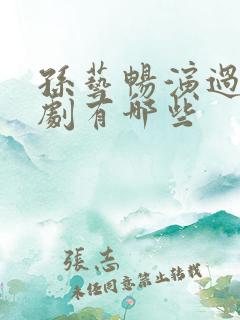 孫藝暢演過
劇有哪些
張志
未經同意禁止轉載